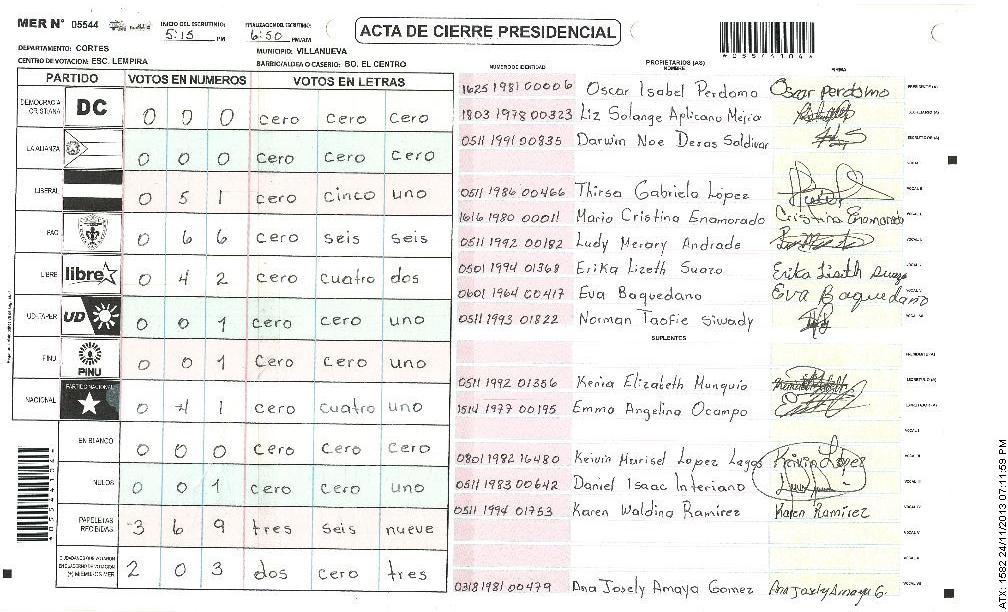 MER N° 05544
INICIO DEL ESCRUTINIO: 5:15 PM
FINALIZACION DEL ESCRUTINIO: 6:50 PM/AM
ACTA DE CIERRE PRESIDENCIAL
DEPARTAMENTO: CORTES
MUNICIPIO: VILLANUEVA
CENTRO DE VOTACION: ESC. LEMPIRA
BARRIO/ALDEA O CASERIO: BO. EL CENTRO
PARTIDO VOTOS EN NUMEROS VOTOS EN LETRAS
DEMOCRACIA CRISTIANA DC 0 0 0 cero cero cero
LA ALIANZA 0 0 0 cero cero cero
LIBERAL 0 5 1 cero cinco uno
PAC 0 6 6 cero seis seis
LIBRE libre 0 4 2 cero cuatro dos
UD-FAPER UD 0 0 1 cero cero uno
PINU PINU 0 0 1 cero cero uno
NACIONAL PARTIDO NACIONAL 0 4 1 cero cuatro uno
EN BLANCO 0 0 0 cero cero cero
NULOS 0 0 1 cero cero uno
PAPELETAS RECIBIDAS 3 6 9 tres seis nueve
CIUDADANOS QUE VOTARON EN CUADERNO DE VOTACION (+) MIEMBROS MER 2 0 3 dos cero tres
NUMERO DE IDENTIDAD PROPIETARIOS (AS) NOMBRE FIRMA
1625 1981 00006 Oscar Isabel Perdomo Oscar perdomo PRESIDENTE (A)
1803 1978 00323 Liz Solange Aplicano Mejia SECRETARIO (A)
0511 1991 00835 Darwin Noe Deras Saldivar ESCRUTADOR (A)
VOCAL I
0511 1986 00466 Thirsa Gabriela Lopez VOCAL II
1616 1980 00011 Maria Cristina Enamorado Cristina Enamorado
0511 1992 00182 Ludy Merary Andrade
0501 1994 01368 Erika Lizeth Suazo Erika Liseth Suazo
0601 1964 00417 Eva Baquedano Eva Baquedano
0511 1993 01822 Norman Taofie Siwady
SUPLENTES
PRESIDENTE (A)
0511 1992 01356 Kenia Elizabeth Munguia SECRETARIO (A)
1514 1977 00195 Emma Angelina Ocampo ESCRUTADOR (A)
VOCAL I
0801 1982 16480 Keivin Marisel Lopez Lagos Keivin López VOCAL II
0511 1983 00642 Daniel Isaac Interiano VOCAL III
0511 1994 01753 Karen Waldina Ramirez Karen Ramirez VOCAL IV
VOCAL V
0318 1981 00479 Ana Josely Amaya Gomez Ana Josely Amaya G. VOCAL VII
ATX: 1582 24/11/2013 07:11:59 PM